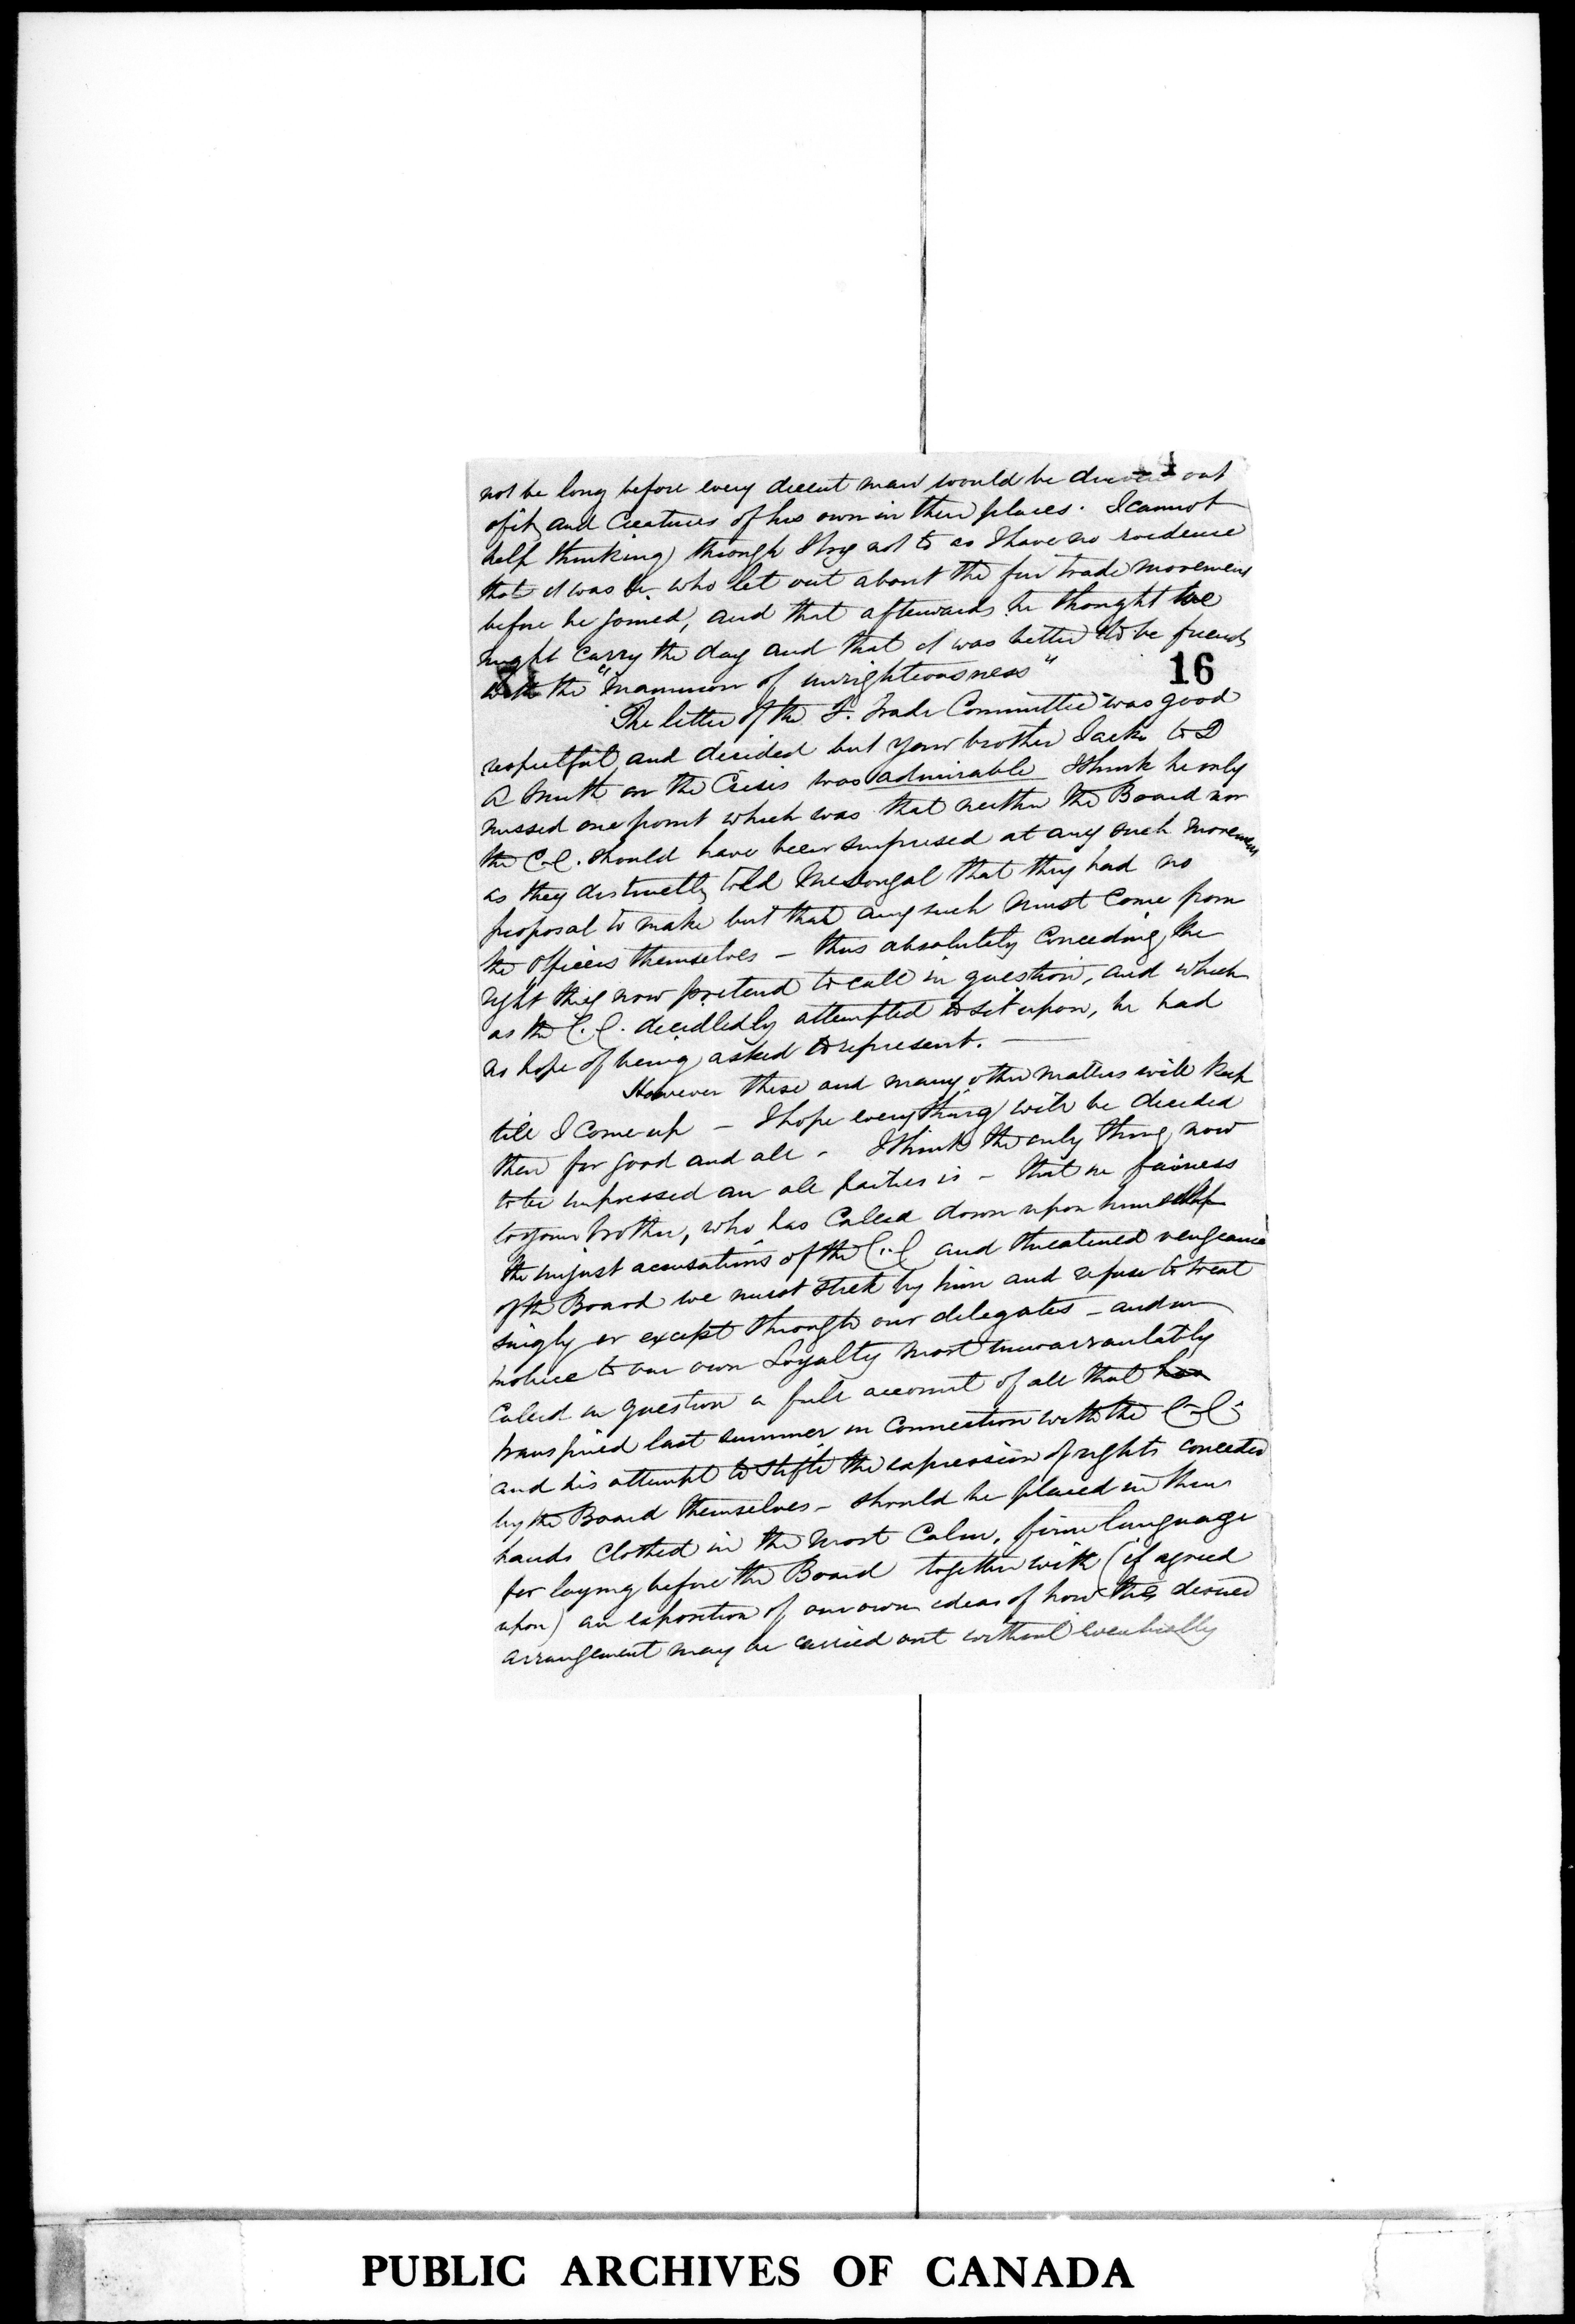 not be long before every decent man would be driven out
of it, and Creatures of his own in their places. I cannot
help thinking, though I try not to as I have no evidence
that it was he who let out about the fur trade movement
before he joined, and that afterwards he thought we
might carry the day and that it was better to be friends
with the "Mammon of unrighteousness"
16
The letter of the F. Trade Committee was good
respectful and decided but your brother Jacks to D
A Smith on the Crisis was admirable I think he only
missed one point which was that neither the Board nor
the C-C. should have been surprised at any such movement
as they distinctly told McDougal that they had no
proposal to make but that any such must come from
the Officers themselves - thus absolutely conceding the
right they now pretend to call in question, and which
as the C.C. decidedly attempted to set upon, he had
no hope of being asked to represent. —
However these and many other matters will keep
till I come up - I hope everything will be decided
then for good and all - I think the only thing now
to be impressed on all parties is - that in fairness
to your brother, who has called down upon himself
the unjust accusations of the C.C and threatened vengeance
of the Board we must stick by him and refuse to treat
singly or except through our delegates - and in
justice to our own Loyalty most unwarrantably
called in question a full account of all that has
transpired last summer in connection with the C-C-
and his attempt to stifle the expression of rights conceded
by the Board themselves - should be placed in their
hands clothed in the most Calm, firm language
for laying before the Board together with (if agreed
upon) an exposition of our own ideas of how the desired
arrangement may be carried out without eventually
PUBLIC ARCHIVES OF CANADA